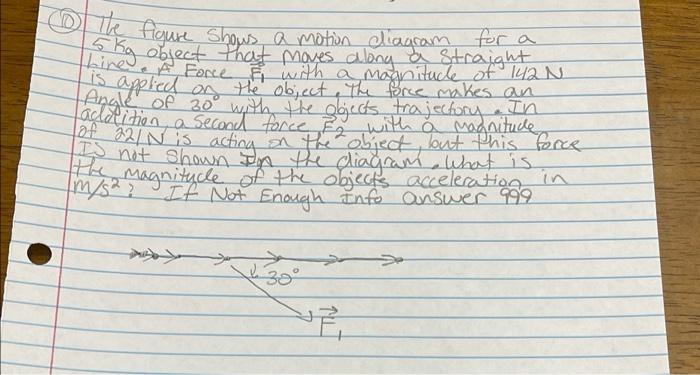 10 The figure shows a motion diagram for a
5 Kg object that moves along a straight
Line. A Force F₁ with a magnitude of 142 N
is applied on the object. The force makes an
Angle of 30° with the objects trajectory. In
addition a second force F₂ with a magnitude
of 221 N is acting on the object, but this force
Is not shown In the diagram. what is
the magnitude of the objects acceleration in
m/s²? If Not Enough Info answer 999
30°
F₁